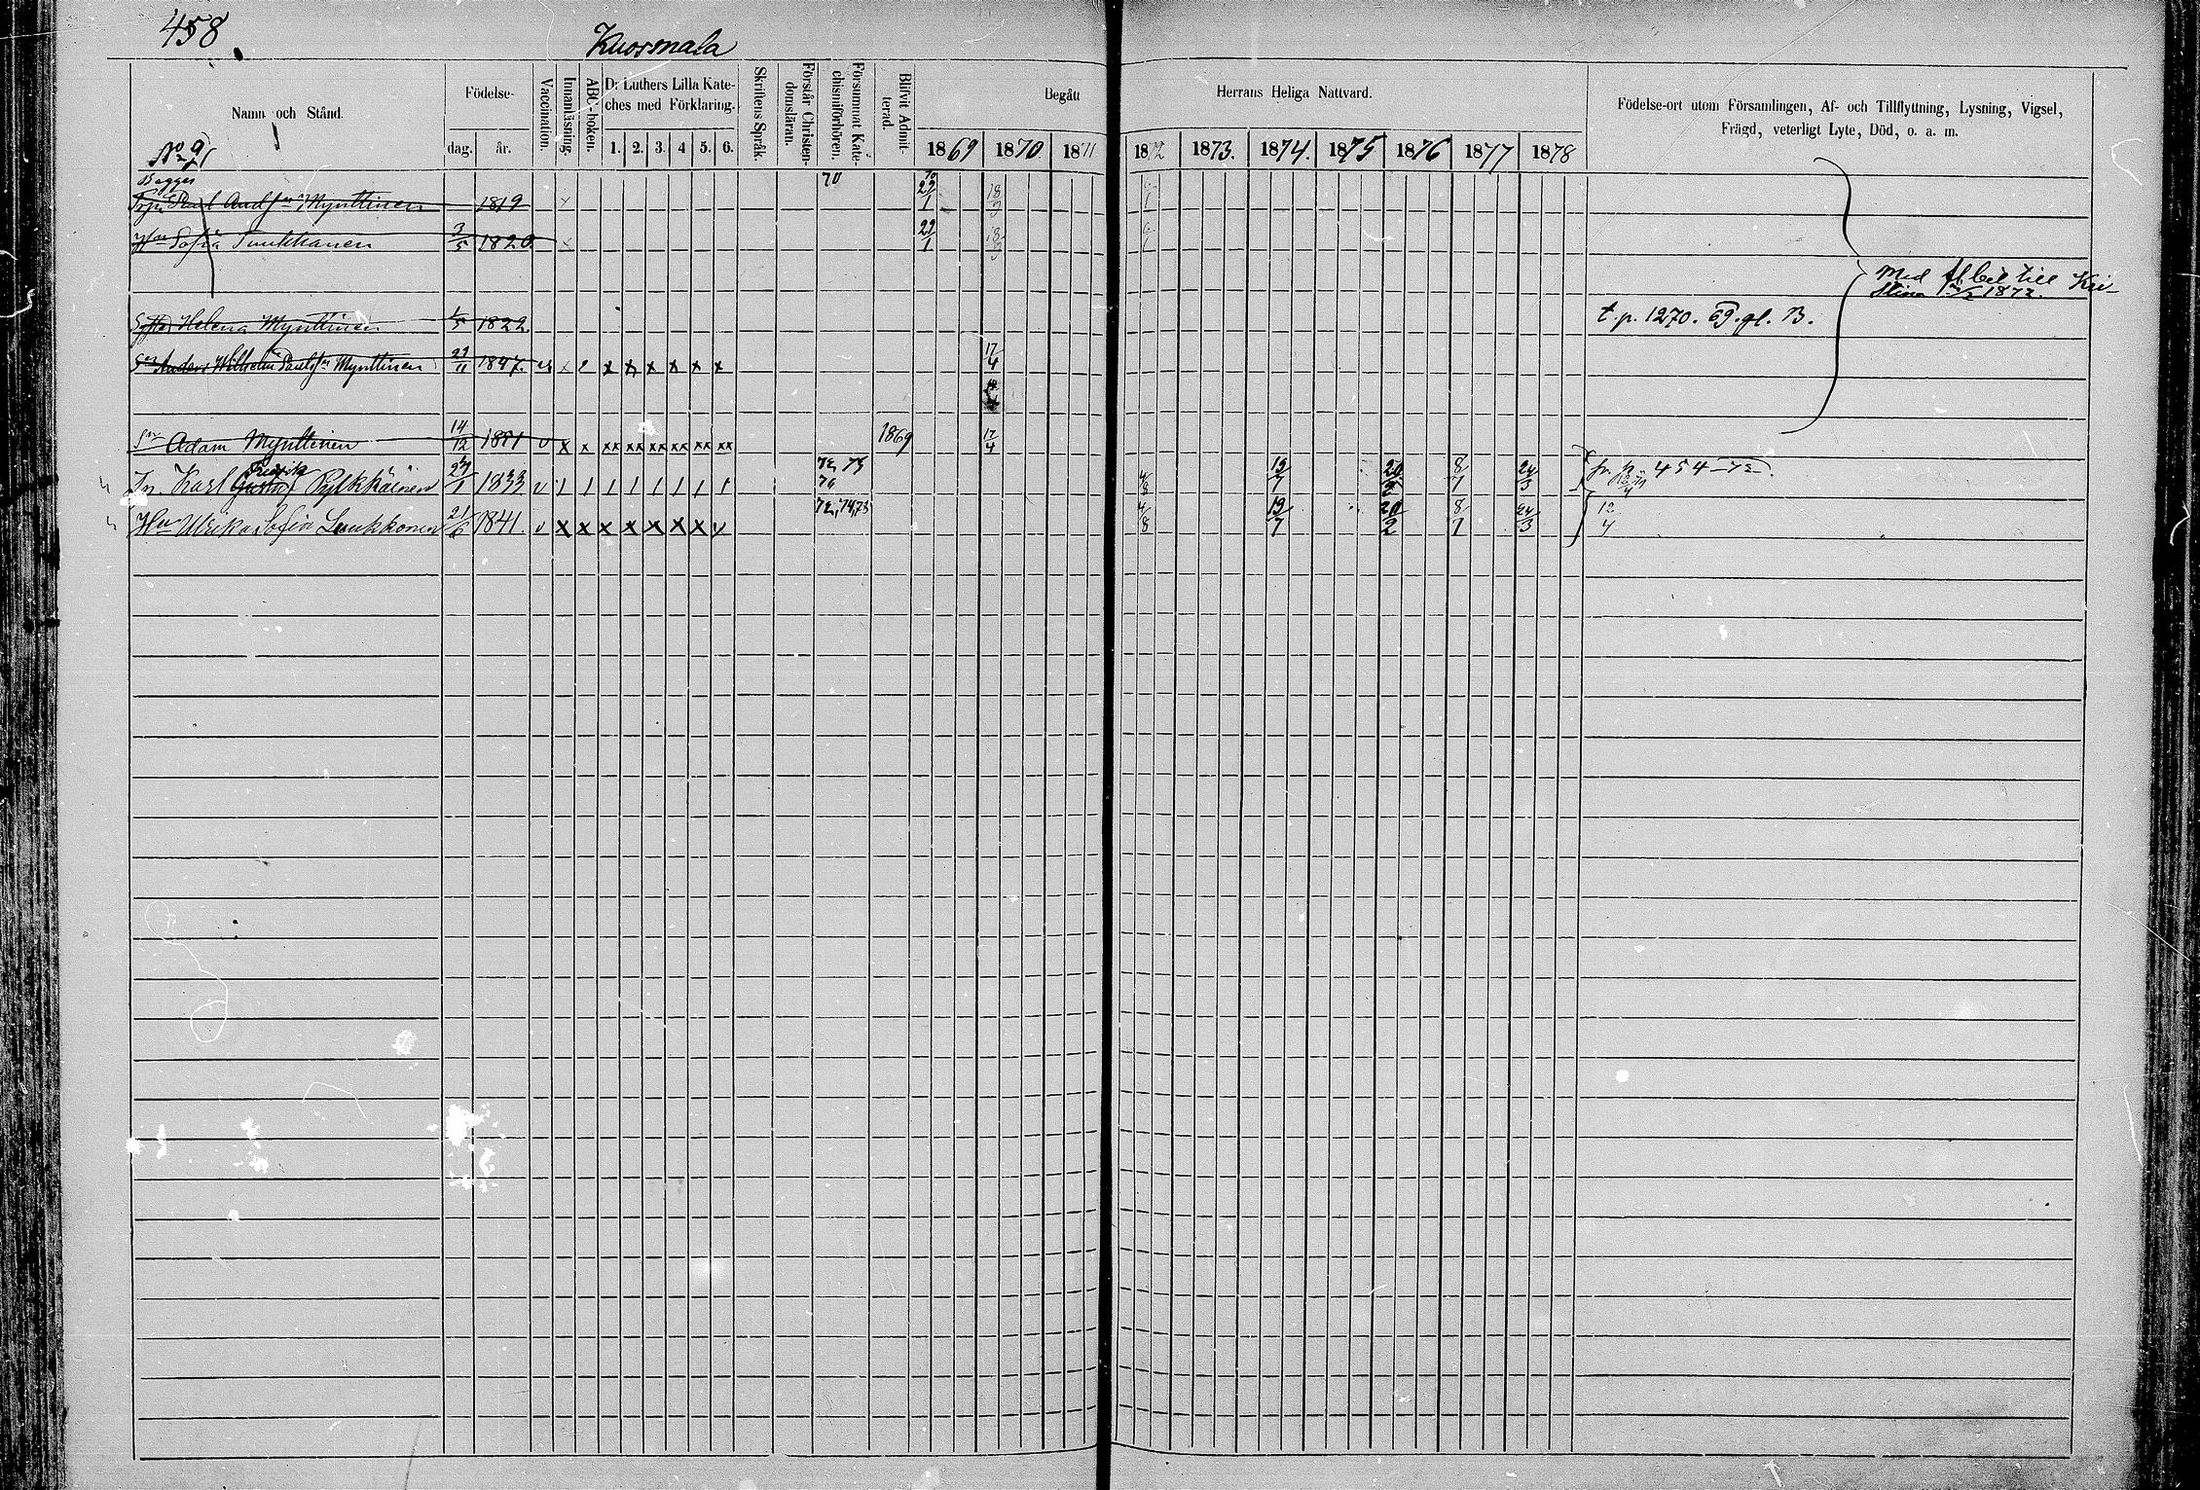 458
Kuosmala
Namn och Stånd.
Födelse-
dag.
år.
Vaccination.
Innanläsning.
ABC-boken.
D:r Luthers Lilla Kate-
ches med Förklaring.
1. 2. 3. 4 5. 6.
Skriftens Språk.
Förstår Christen-
domsläran.
Försummat Kate-
chismiförhören.
Blifvit Admit-
terad.
Begått
Herrans Heliga Nattvard.
1869 1870 1871 1872 1873. 1874. 1875 1876 1877 1878
Födelse-ort utom Församlingen, Af- och Tillflyttning, Lysning, Vigsel,
Frägd, veterligt Lyte, Död, o. a. m.
No 9
Paul And Mynttinen 1819 70 22/1
Sofia 3/5 1820 22/1
Med till Kri-
stina 1872.
Helena Mynttinen 1822 t. p. 1270. 69. gl. B.
Anders Wilhelm Paulss Mynttinen 29/11 1847. v x x x x x x x 17/4
Sn Adam Mynttinen 14/12 1851 v x x xx xx xx xx xx xx 1869 17/4
In. Karl Fredrik Gustaf Pylkkäinen 27/1 1833 v 1 1 1 1 1 1 1 1 72, 75 76 4/8 19/7 20/2 8/7 24/3 fr. p. 454-72.
Hu Ulrika Sofia Luukkonen 21/6 1841. v x x x x x x x x 72, 74, 75 4/8 19/7 20/2 8/7 24/3 12/4